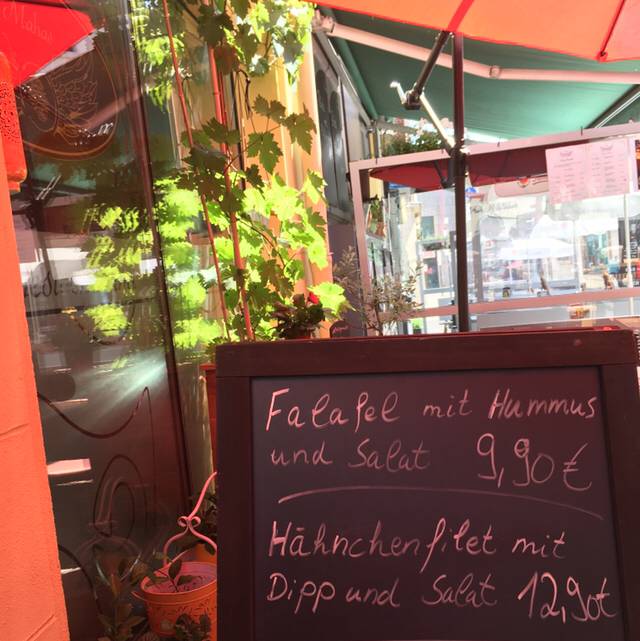 Falafel mit Hummus
und Salat 9,90 €
Hähnchenfilet mit
Dipp und Salat 12,90€